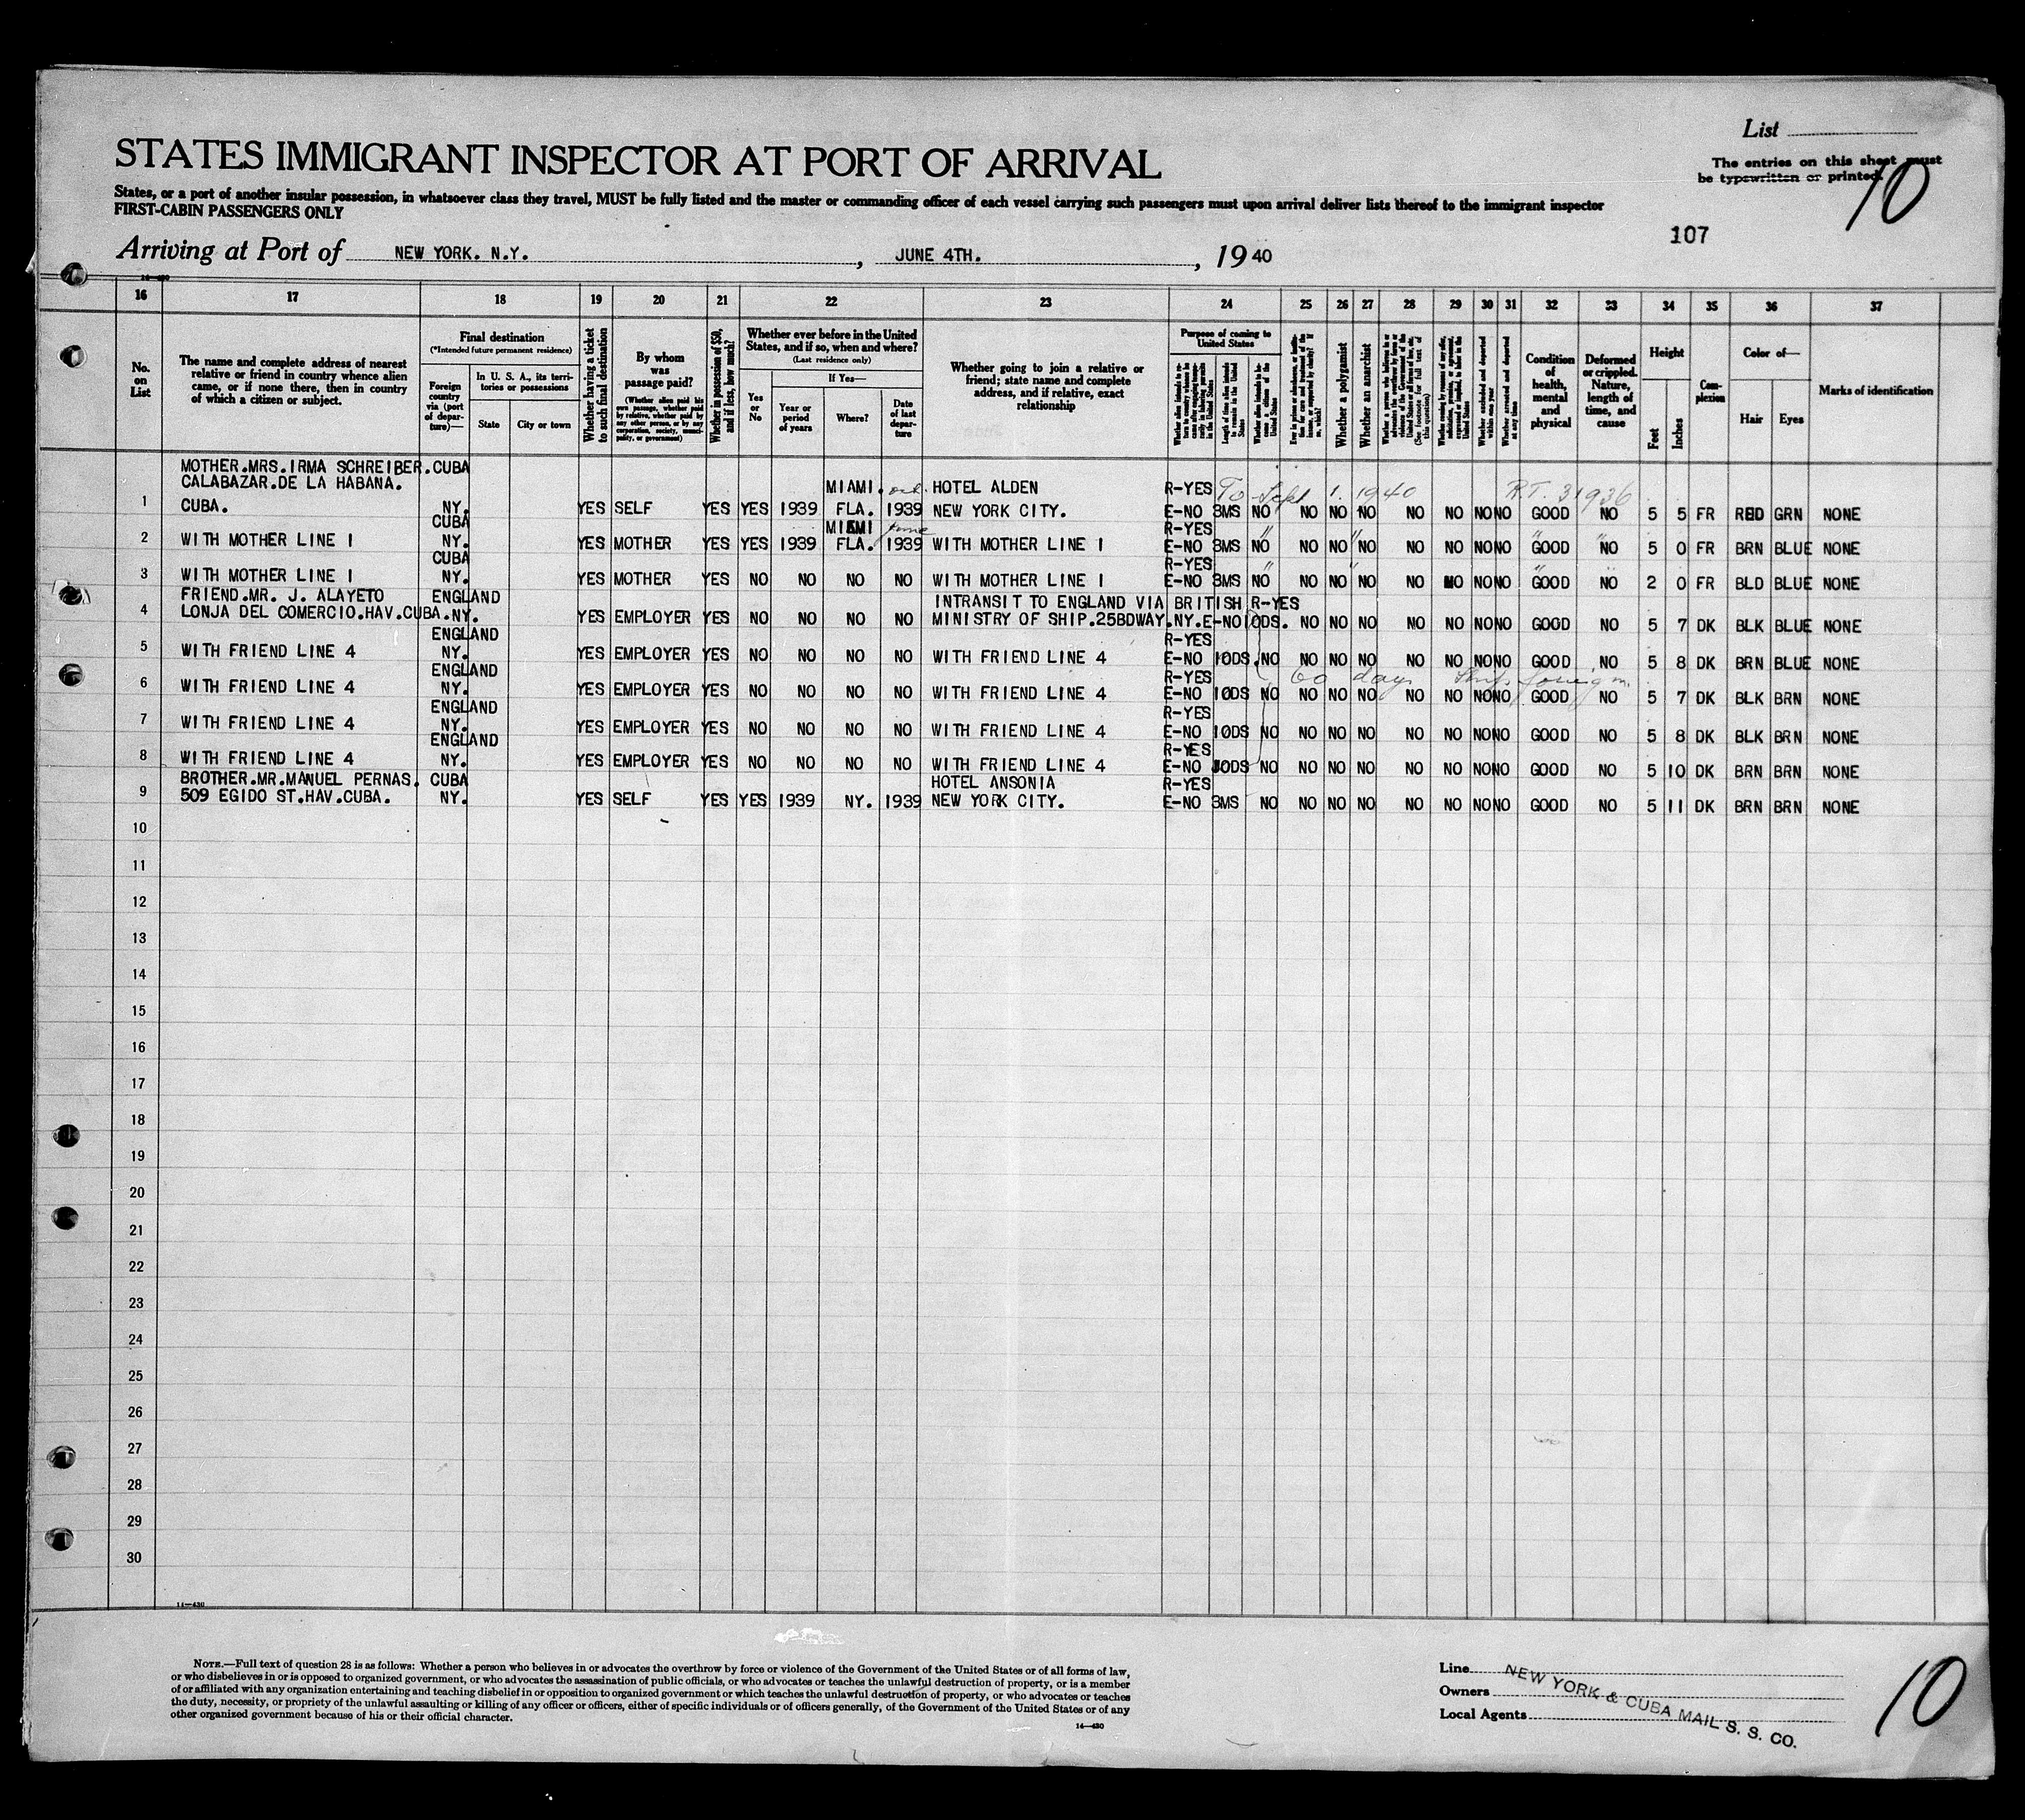 List
The entries on this sheet must
be typewritten or printed.
10
STATES IMMIGRANT INSPECTOR AT PORT OF ARRIVAL
States, or a port of another insular possession, in whatsoever class they travel, MUST be fully listed and the master or commanding officer of each vessel carrying such passengers must upon arrival deliver lists thereof to the immigrant inspector
FIRST-CABIN PASSENGERS ONLY
107
Arriving at Port of NEW YORK. N.Y. , JUNE 4TH. , 1940
16 17 18 19 20 21 22 23 24 25 26 27 28 29 30 31 32 33 34 35 36 37
No. on List
The name and complete address of nearest relative or friend in country whence alien came, or if none there, then in country of which a citizen or subject.
Final destination
(*Intended future permanent residence)
Foreign country via (port of departure)—
In U. S. A., its territories or possessions
State
City or town
Whether having a ticket to such final destination
By whom was passage paid?
(Whether alien paid his own passage, whether paid by relative, whether paid by any other person, or by any corporation, society, municipality, or government)
Whether in possession of $50, and if less, how much?
Whether ever before in the United States, and if so, when and where?
(Last residence only)
Yes or No
If Yes—
Year or period of years
Where?
Date of last departure
Whether going to join a relative or friend; state name and complete address, and if relative, exact relationship
Purpose of coming to United States
Length of time alien intends to remain in the United States
Whether a polygamist
Whether an anarchist
(See footnote for full text of this question)
Condition of health, mental and physical
Deformed or crippled. Nature, length of time, and cause
Height
Feet
Inches
Complexion
Color of—
Hair
Eyes
Marks of identification
MOTHER.MRS.IRMA SCHREIBER.CUBA
CALABAZAR.DE LA HABANA. MIAMI. oct. HOTEL ALDEN R-YES To Sept 1. 1940 R.T. 31936
1 CUBA. NY. YES SELF YES YES 1939 FLA. 1939 NEW YORK CITY. E-NO 3MS NO NO NO NO NO NO NO NO GOOD NO 5 5 FR RED GRN NONE
CUBA MIAMI June R-YES
2 WITH MOTHER LINE 1 NY. YES MOTHER YES YES 1939 FLA. 1939 WITH MOTHER LINE 1 E-NO 3MS NO NO NO NO NO NO NO NO GOOD NO 5 0 FR BRN BLUE NONE
CUBA R-YES
3 WITH MOTHER LINE 1 NY. YES MOTHER YES NO NO NO NO WITH MOTHER LINE 1 E-NO 3MS NO NO NO NO NO NO NO NO GOOD NO 2 0 FR BLD BLUE NONE
FRIEND.MR. J. ALAYETO ENGLAND INTRANSIT TO ENGLAND VIA BRITISH R-YES
4 LONJA DEL COMERCIO.HAV.CUBA.NY. YES EMPLOYER YES NO NO NO NO MINISTRY OF SHIP.25BDWAY.NY.E-NO 10DS. NO NO NO NO NO NO NO GOOD NO 5 7 DK BLK BLUE NONE
ENGLAND R-YES
5 WITH FRIEND LINE 4 NY. YES EMPLOYER YES NO NO NO NO WITH FRIEND LINE 4 E-NO 10DS.NO NO NO NO NO NO NO NO GOOD NO 5 8 DK BRN BLUE NONE
ENGLAND R-YES 60 days
6 WITH FRIEND LINE 4 NY. YES EMPLOYER YES NO NO NO NO WITH FRIEND LINE 4 E-NO 10DS NO NO NO NO NO NO NO NO GOOD NO 5 7 DK BLK BRN NONE
ENGLAND R-YES
7 WITH FRIEND LINE 4 NY. YES EMPLOYER YES NO NO NO NO WITH FRIEND LINE 4 E-NO 10DS NO NO NO NO NO NO NO NO GOOD NO 5 8 DK BLK BRN NONE
ENGLAND R-YES
8 WITH FRIEND LINE 4 NY. YES EMPLOYER YES NO NO NO NO WITH FRIEND LINE 4 E-NO 10DS NO NO NO NO NO NO NO NO GOOD NO 5 10 DK BRN BRN NONE
BROTHER.MR.MANUEL PERNAS. CUBA HOTEL ANSONIA R-YES
9 509 EGIDO ST.HAV.CUBA. NY. YES SELF YES YES 1939 NY. 1939 NEW YORK CITY. E-NO 3MS NO NO NO NO NO NO NO NO GOOD NO 5 11 DK BRN BRN NONE
10
11
12
13
14
15
16
17
18
19
20
21
22
23
24
25
26
27
28
29
30
14—430
NOTE.—Full text of question 28 is as follows: Whether a person who believes in or advocates the overthrow by force or violence of the Government of the United States or of all forms of law,
or who disbelieves in or is opposed to organized government, or who advocates the assassination of public officials, or who advocates or teaches the unlawful destruction of property, or is a member
of or affiliated with any organization entertaining and teaching disbelief in or opposition to organized government or which teaches the unlawful destruction of property, or who advocates or teaches
the duty, necessity, or propriety of the unlawful assaulting or killing of any officer or officers, either of specific individuals or of officers generally, of the Government of the United States or of any
other organized government because of his or their official character.
14—430
Line
Owners
Local Agents
NEW YORK & CUBA MAIL S. S. CO.
10